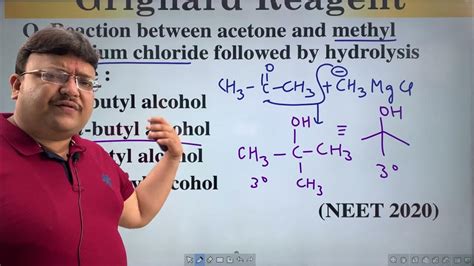 Grignard Reagent
Q. Reaction between acetone and methyl
chloride followed by hydrolysis
:
butyl alcohol
-butyl alcohol
butyl alcohol
alcohol
O
CH₃ - C - CH₃ + ⊖CH₃ Mg Cl
OH
CH₃ - C - CH₃ ≡ OH
CH₃
3° 3°
(NEET 2020)